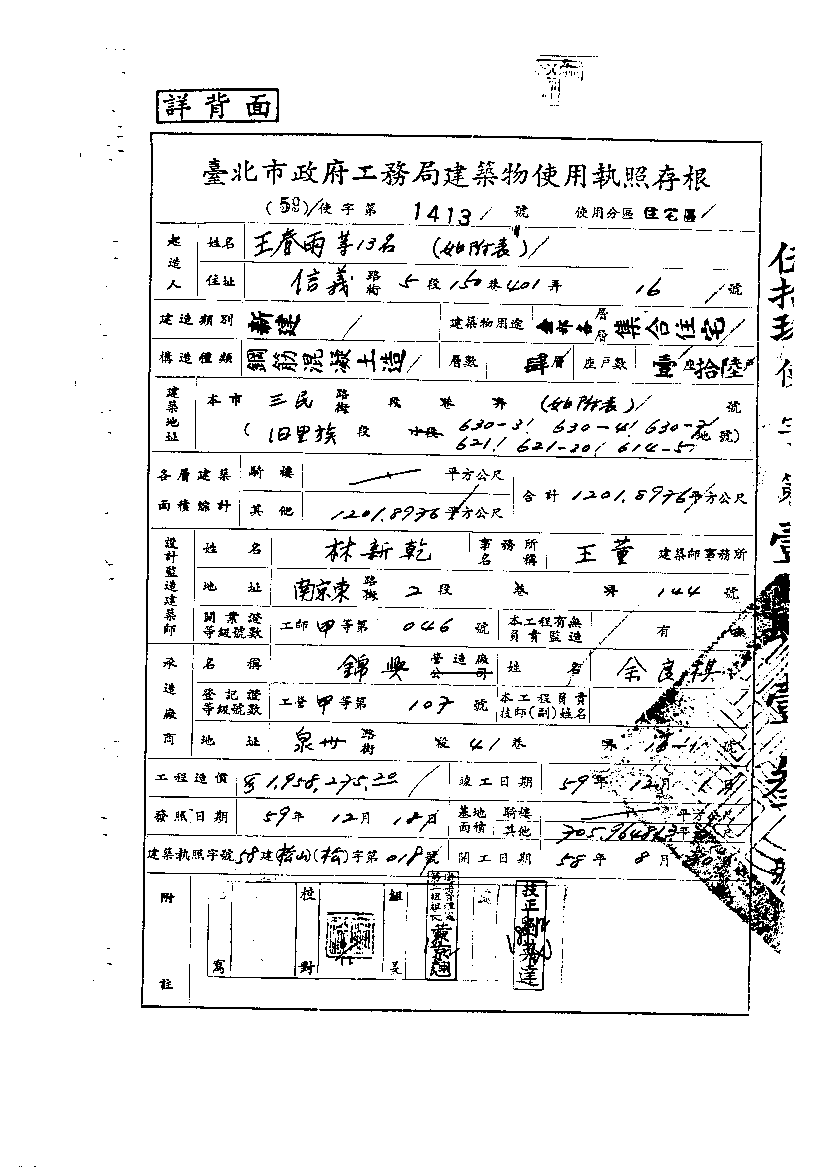 詳背面
臺北市政府工務局建築物使用執照存根
(59)使字第 1413 號 使用分區 住宅區
起造人 姓名 王春雨等13名 (如附表)
住址 信義 路街 5 段 150 巷 401 弄 16 號
建造類別 新建 建築物用途 層層 集合住宅
構造種類 鋼筋混凝土造 層數 肆層 座戶數 壹座拾陸戶
建築地址 本市 三民 路街 段 巷 弄 (如附表) 號
(旧里族 段 小段 630-3 630-4 630-
621 621-30 614-5 地號)
各層建築面積綜計 騎樓 平方公尺 合計 1201.8936 平方公尺
其他 1201.8936 平方公尺
設計監造建築師 姓名 林新乾 事務所名稱 王董 建築師事務所
地址 南京東 路街 2 段 巷 弄 144 號
開業證等級號數 工師甲等第 046 號 本工程有無負責監造 有 無
承造廠商 名稱 錦興 營造廠公司 姓名 余良祺
登記證等級號數 工營甲等第 107 號 本工程負責技師(副)姓名
地址 泉州 路街 段 41 巷 弄 號
工程造價 1,958,275.20 竣工日期 59年 12月 1日
發照日期 59年 12月 18日 基地面積 騎樓 平方公尺
其他 平方公尺
建築執照字號 58建(松山)(松)字第 018 號 開工日期 58年 8月 日
附註 寫 校對 組長
技正
伍拾玖使字第壹